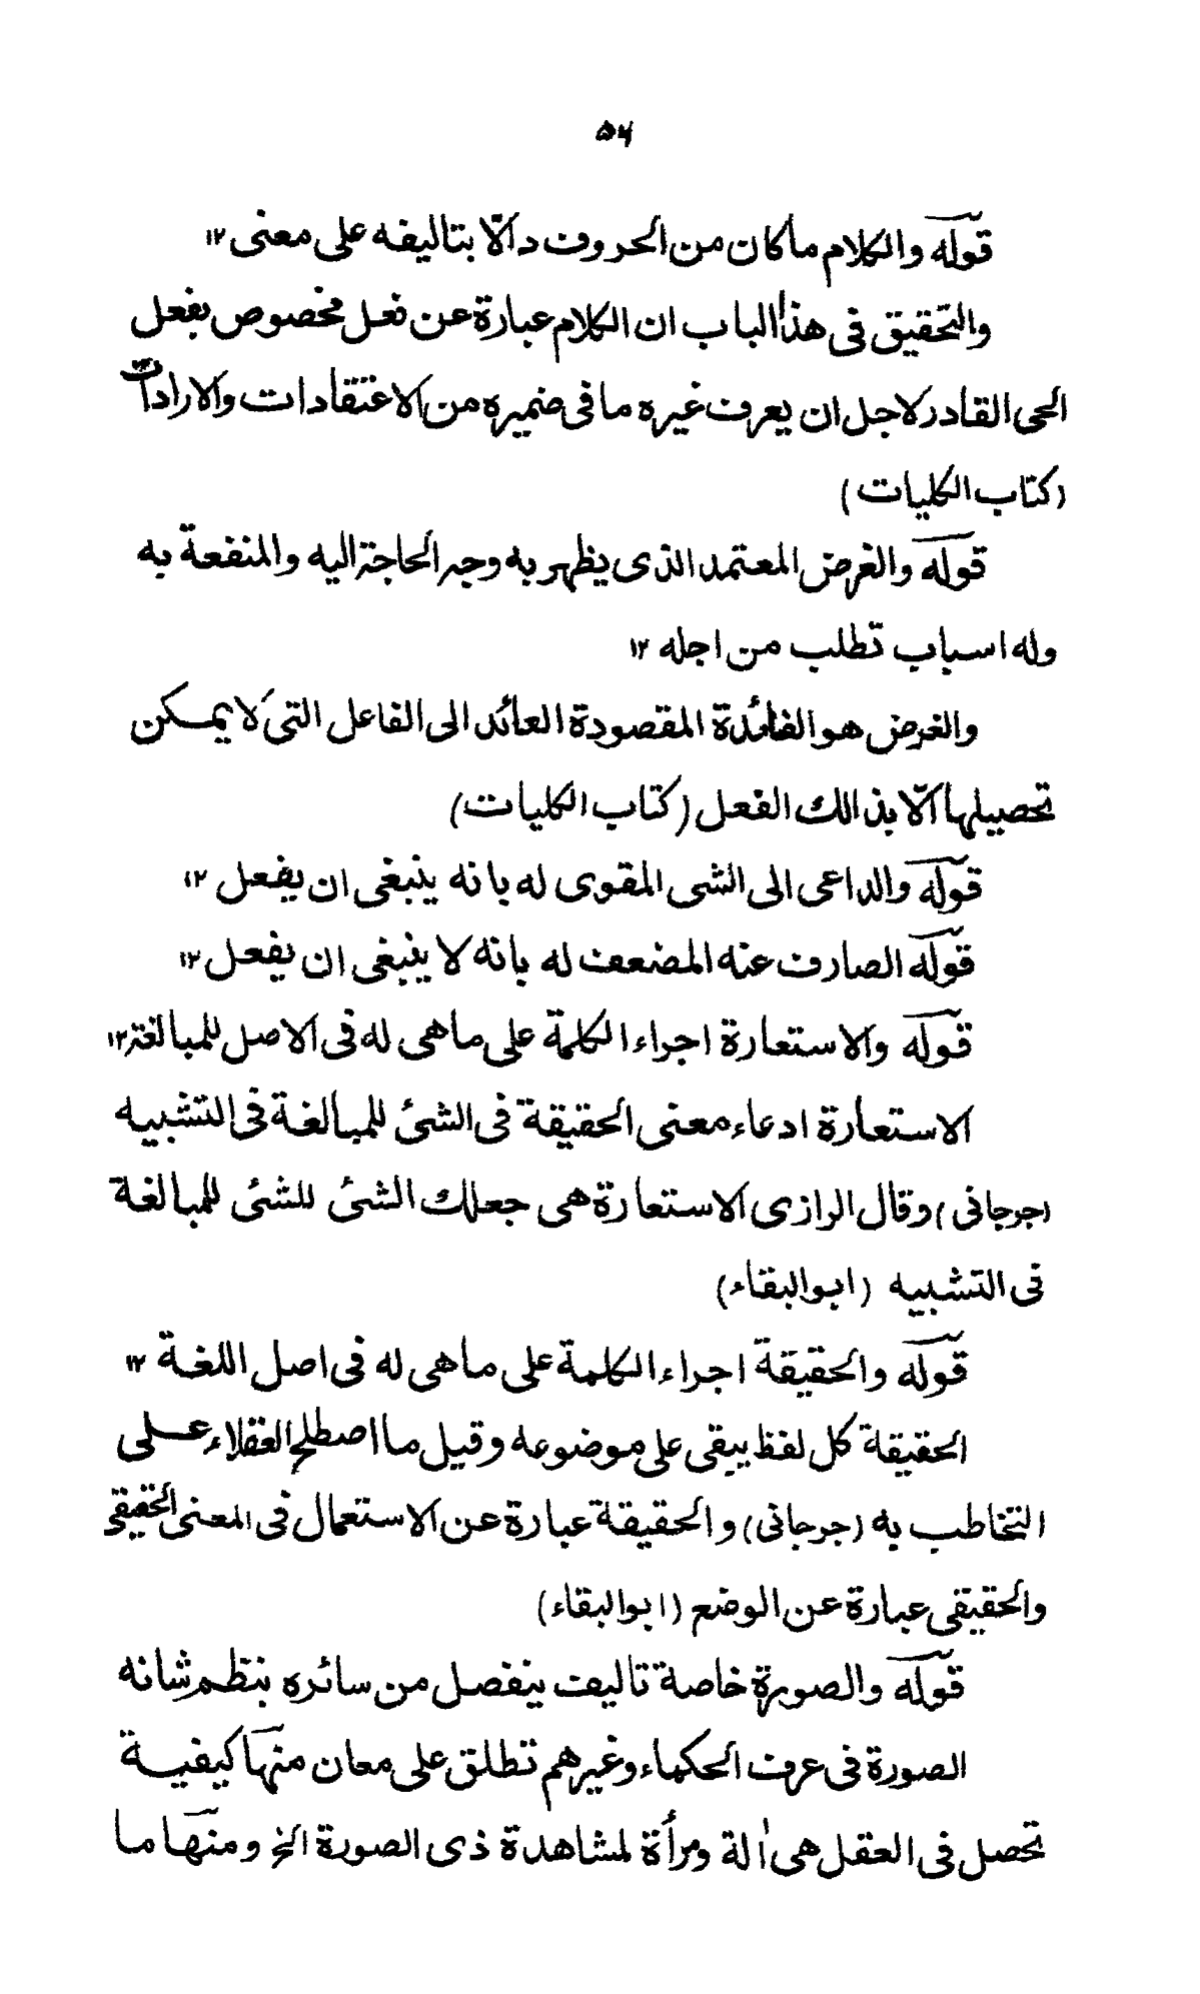 ۵۶
قوله والكلام ماكان من الحروف دالّا بتاليفه على معنى ۱۲
والتحقيق فى هذا الباب ان الكلام عبارة عن فعل مخصوص يفعل
الحى القادر لاجل ان يعرف غيره مافى ضميره من الاعتقادات والارادات
(كتاب الكليات)
قوله والغرض المعتمد الذى يظهر به وجه الحاجة اليه والمنفعة به
وله اسباب تطلب من اجله ۱۲
والغرض هو الفائدة المقصودة العائد الى الفاعل التى لا يمكن
تحصيلها الّا بذالك الفعل (كتاب الكليات)
قوله والداعى الى الشى المقوى له بانه ينبغى ان يفعل ۱۲
قوله الصارف عنه المضعف له بانه لا ينبغى ان يفعل ۱۲
قوله والاستعارة اجراء الكلمة على ماهى له فى الاصل للمبالغة ۱۲
الاستعارة ادعاء معنى الحقيقة فى الشئ للمبالغة فى التشبيه
(جرجانى) وقال الرازى الاستعارة هى جعلك الشئ للشئ للمبالغة
فى التشبيه (ابوالبقاء)
قوله والحقيقة اجراء الكلمة على ماهى له فى اصل اللغة ۱۲
الحقيقة كل لفظ يبقى على موضوعه وقيل ما اصطلح العقلاء على
التخاطب به (جرجانى) والحقيقة عبارة عن الاستعمال فى المعنى الحقيقى
والحقيقى عبارة عن الوضع (ابوالبقاء)
قوله والصورة خاصة تاليف ينفصل من سائره بنظم شانه
الصورة فى عرف الحكماء وغيرهم تطلق على معان منها كيفية
تحصل فى العقل هى اٰلة ومرأة لمشاهدة ذى الصورة الخ ومنها ما